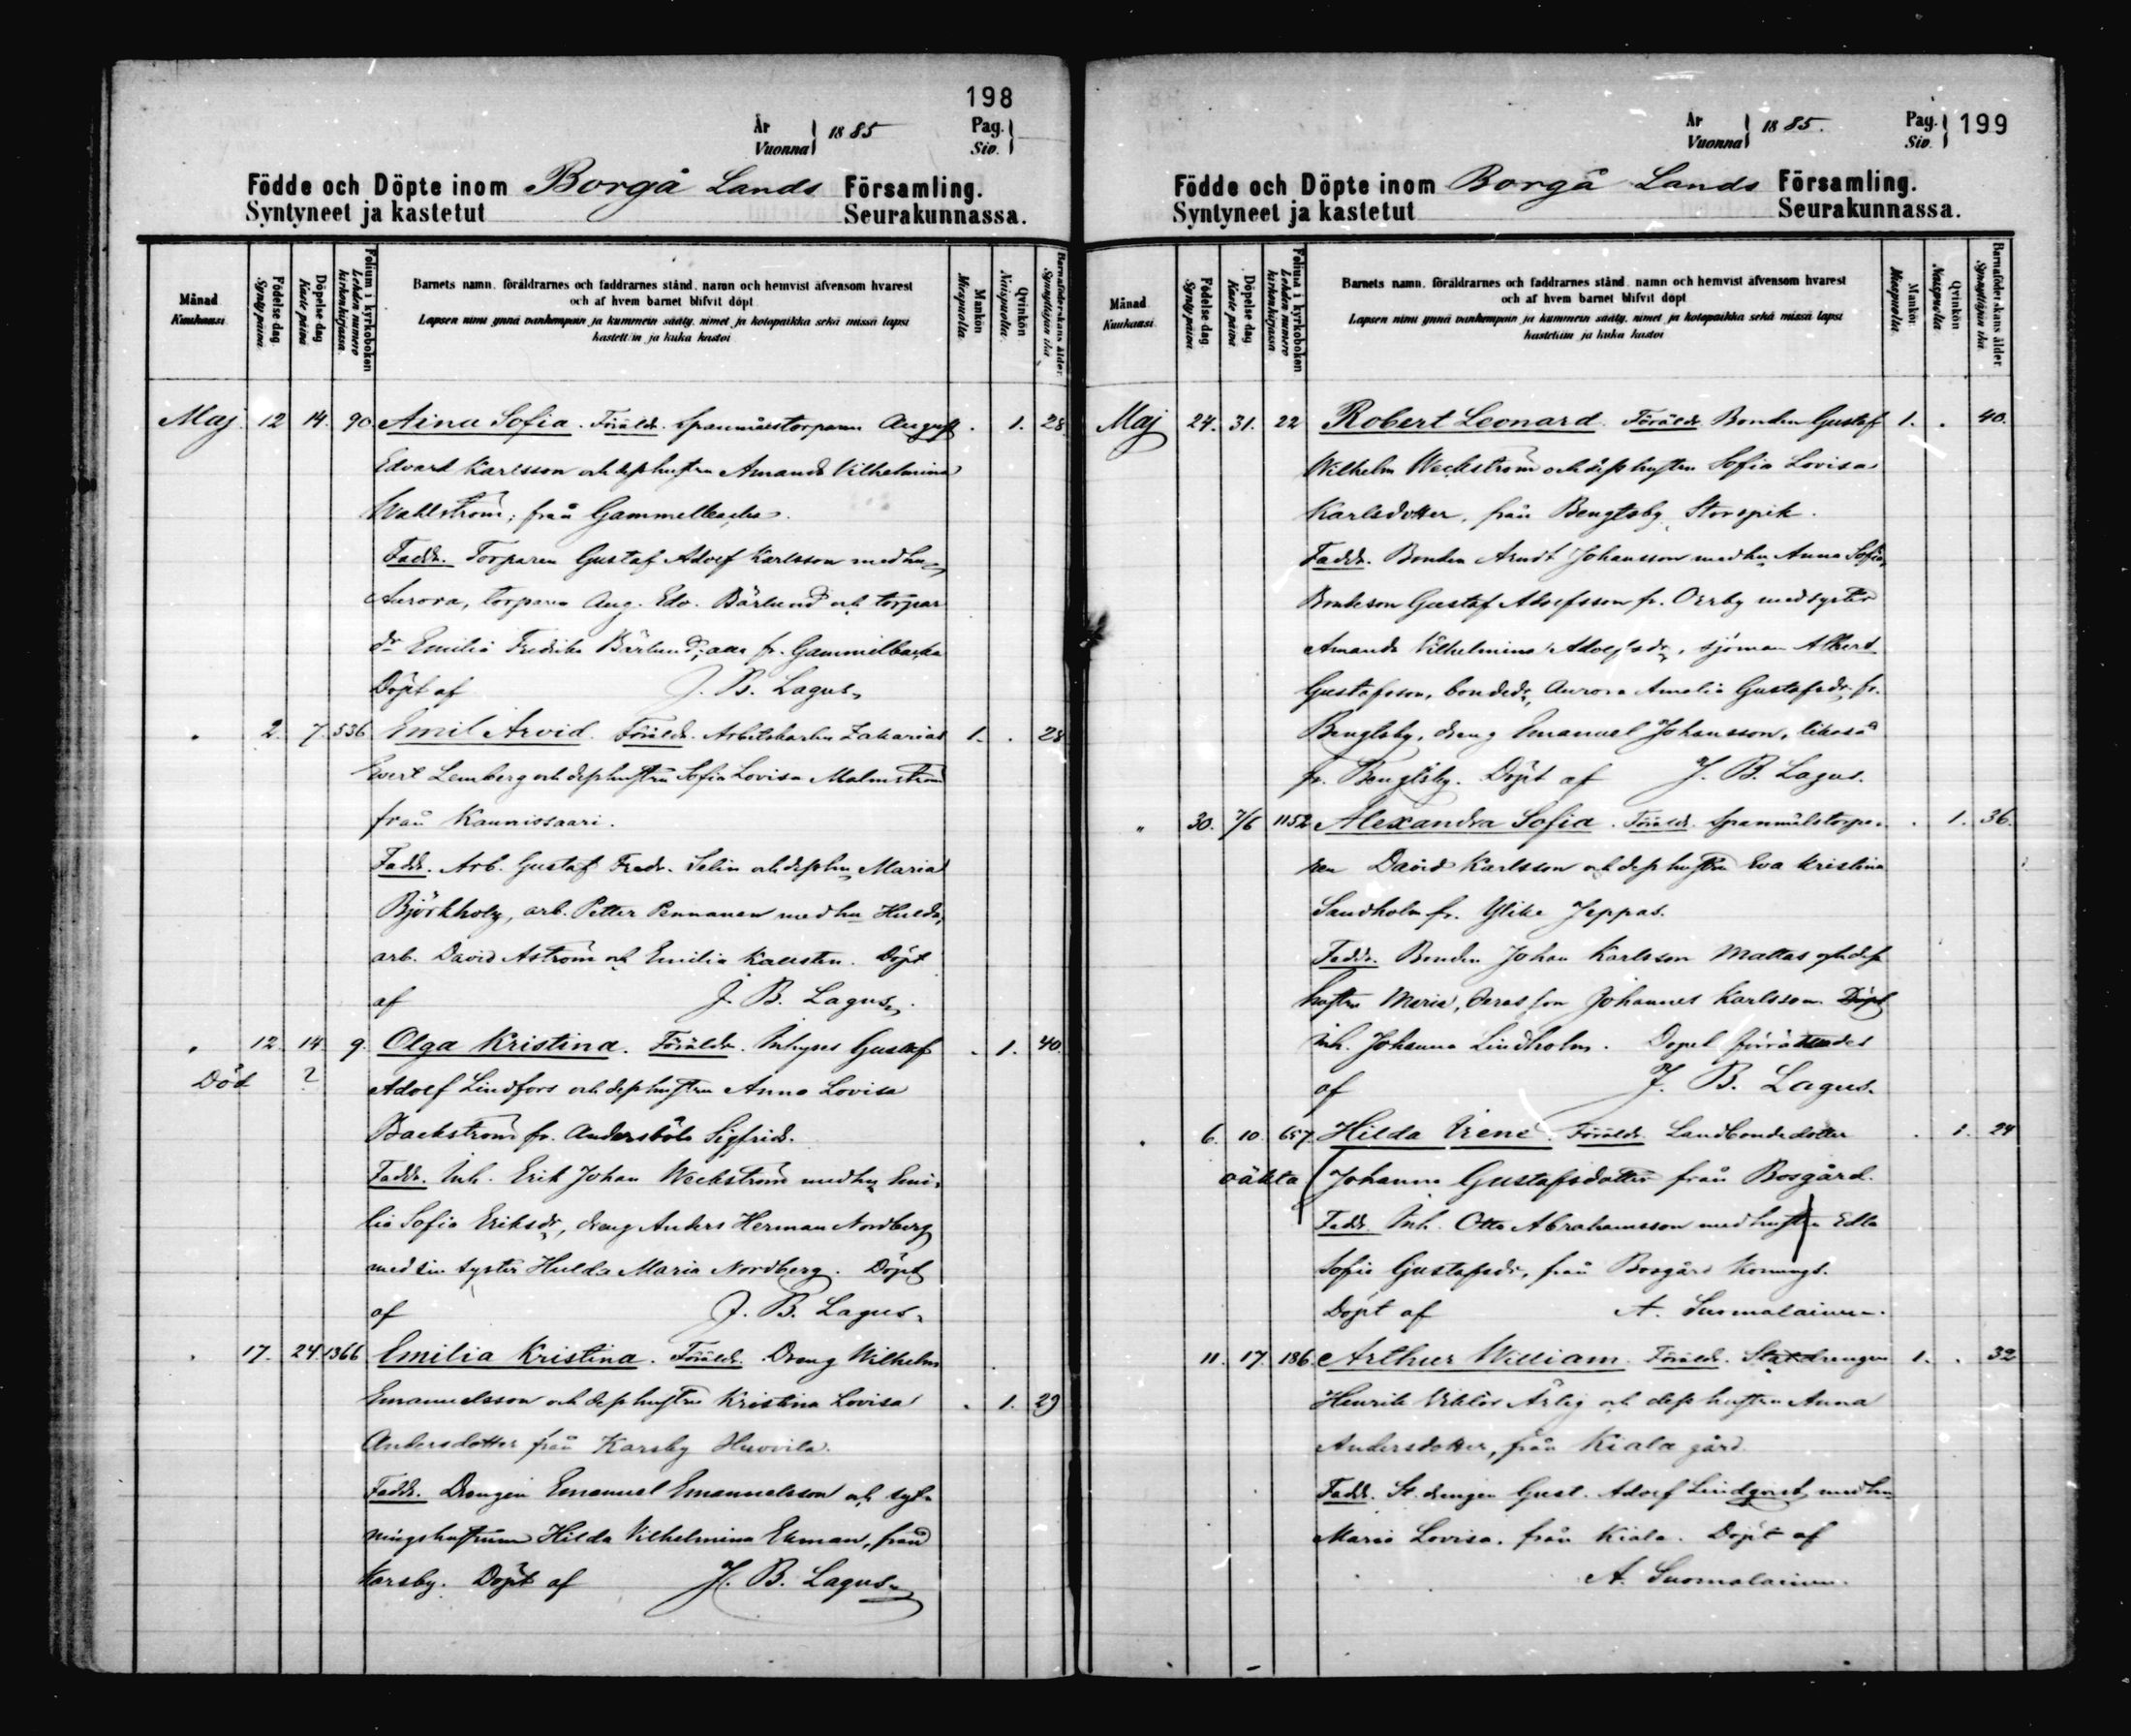 198
År Vuonna } 1885 Pag. Siv. }
Födde och Döpte inom Borgå Lands Församling.
Syntyneet ja kastetut Seurakunnassa.
Månad Kuukausi
Födelse dag Synty päivä.
Döpelse dag Kaste päivä
Folium i kyrkoboken Lehden numero kirkonkirjassa.
Barnets namn, föräldrarnes och faddrarnes stånd, namn och hemvist äfvensom hvarest
och af hvem barnet blifvit döpt
Lapsen nimi ynnä vanhempain ja kummein sääty, nimet ja kotopaikka sekä missä lapsi
kastettiin ja kuka kastoi
Mankön Miespuolta.
Qvinkön Naispuolta.
Barnaföderskans ålder. Synnyttäjän ikä.
Maj. 12 14. 90. Aina Sofia. Föräldr. Spanmålstorparen August . 1. 28.
Edvard Karlsson och dess hustru Amanda Vilhelmina
Wahlström, från Gammelbacka.
Faddr. Torparen Gustaf Adolf Karlsson med hu
Aurora, torparen Aug. Edv. Bärlund och torpar
dr Emilia Fredrika Bärlund, alla fr. Gammelbacka
Döpt af J. B. Lagus.
" 2. 7. 536 Emil Arvid. Föräldr. Arbetskarlen Zakarias 1. . 28
Evert Lemberg och dess hustru Sofia Lovisa Malmström
från Kaunissaari.
Faddr. Arb. Gustaf Fredr. Selin och dess hu Maria
Björkholz, arb. Petter Pennanen med hu Hulda,
arb. David Aström och Emilia Karsten. Döpt
af J. B. Lagus.
" 12. 14. 9. Olga Kristina. Föräldr. Inhyses Gustaf . 1. 40.
Död ? Adolf Lindfors och dess hustru Anna Lovisa
Backström fr. Andersböle Sigfrids.
Faddr. Inh. Erik Johan Weckström med hu Emi-
lia Sofia Eriksdr, dreng Anders Herman Nordberg
med sin syster Hulda Maria Nordberg. Döpt
af J. B. Lagus.
" 17. 24. 1366 Emilia Kristina. Föräldr. Dreng Wilhelm
Emanuelsson och dess hustru Kristina Lovisa . 1. 29
Andersdotter från Karsby Huovila.
Faddr. Drengen Emanuel Emanuelsson och syt-
ningshustrun Hilda Vilhelmina Ekman, från
Karsby. Döpt af J. B. Lagus.
År Vuonna } 1885. Pag. Siv. } 199
Födde och Döpte inom Borgå Lands Församling.
Syntyneet ja kastetut Seurakunnassa.
Månad Kuukausi.
Födelse dag Synty päivä
Döpelse dag Kaste päivä
Folium i kyrkoboken Lehden numero kirkonkirjassa
Barnets namn, föräldrarnes och faddrarnes stånd, namn och hemvist äfvensom hvarest
och af hvem barnet blifvit döpt
Lapsen nimi ynnä vanhempain ja kummein sääty, nimet ja kotopaikka sekä missä lapsi
kastettiin ja kuka kastoi
Mankön Miespuolta.
Qvinkön Naispuolta.
Barnaföderskans ålder Synnyttäjän ikä.
Maj 24. 31. 22 Robert Leonard. Föräldr. Bonden Gustaf 1. . 40.
Wilhelm Weckström och dess hustru Sofia Lovisa
Karlsdotter, från Bengtsby Storspik.
Faddr. Bonden Arndt Johansson med hu Anna Sofia,
Bondeson Gustaf Adolfsson fr. Oerby med syster
Amanda Vilhelmina Adolfsdr, sjöman Albert
Gustafsson, bondedr Aurora Amalia Gustafsdr fr.
Bengtsby, dreng Emanuel Johansson, likaså
fr. Bengtsby. Döpt af J. B. Lagus.
" 30. 7/6 1152 Alexandra Sofia. Föräldr. Spanmålstorpa- . 1. 36.
ren David Karlsson och dess hustru Eva Kristina
Sandholm fr. Ylike Jeppas.
Faddr. Bonden Johan Karlsson Mattas och dess
hustru Maria, deras son Johannes Karlsson Döpt
Inh. Johanna Lindholm. Dopet förrättades
af J. B. Lagus.
" 6. 10. 657. Hilda Irene. Föräldr. Landbondedotter . 1. 24
oäkta Johanna Gustafsdotter från Bosgård.
Faddr. Inh. Otto Abrahamsson med hustru Edla
Sofia Gustafsdr, från Bosgård Konungs.
Döpt af A. Suomalainen.
11. 17. 186. Arthur William. Föräldr. Statdrengen 1. . 32
Henrik Viktor Ärlig och dess hustru Anna
Andersdotter, från Kiala gård.
Faddr. St. drengen Gust. Adolf Lindqvist med hu
Maria Lovisa, från Kiala. Döpt af
A. Suomalainen.